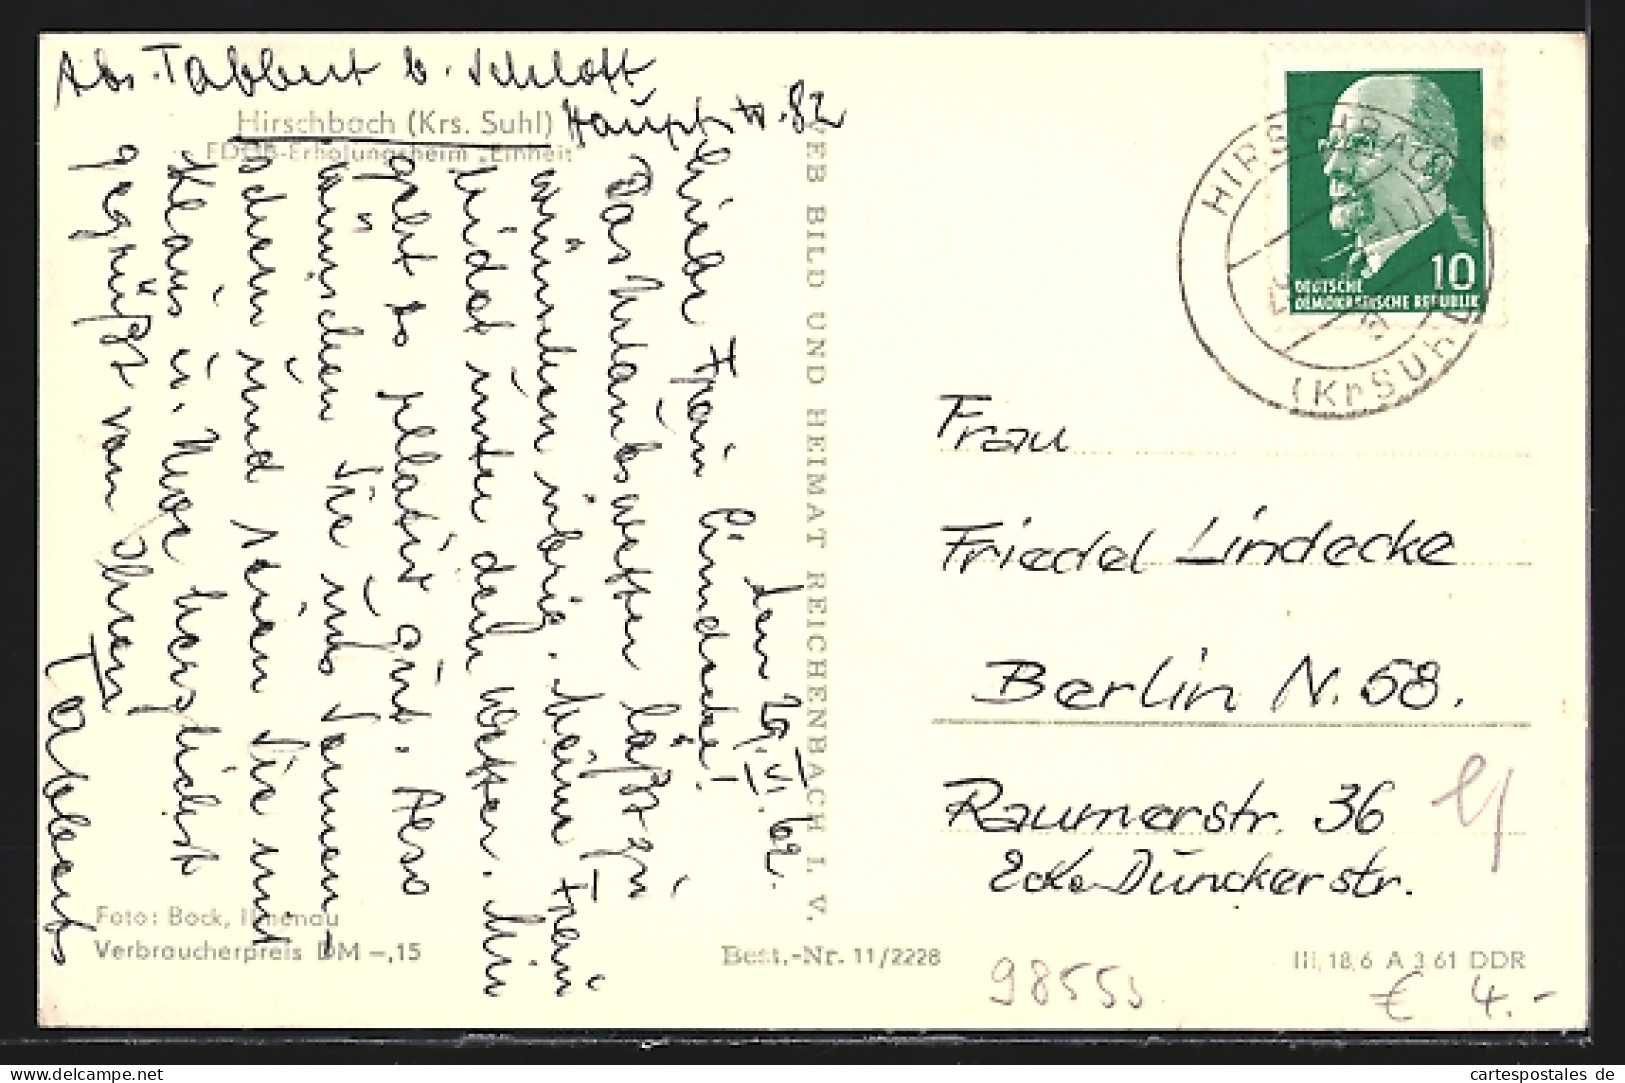 Abs. Tabbert b. Schlott
Hauptstr. 82
Hirschbach (Krs. Suhl)
FDGB-Erholungsheim „Einheit"
den 29. VI. 62.
Liebe Frau Lindecke!
Das Urlaubswetter läßt zu
wünschen übrig. Meine Frau
leidet unter dem Wetter. Mir
geht es relativ gut. Also
wünschen Sie uns Sonnen-
schein und seien Sie mit
Klaus u. herzlichst
gegrüßt von Ihren
Tabberts
Foto: Bock, Ilmenau
Verbraucherpreis DM –,15
VEB BILD UND HEIMAT REICHENBACH I. V.
Best.-Nr. 11/2228
HIRSCHBACH
(Kr SUHL)
10
DEUTSCHE
DEMOKRATISCHE REPUBLIK
Frau
Friedel Lindecke
Berlin N. 58.
Raumerstr. 36
Ecke Dunckerstr.
III, 18, 6 A 3 61 DDR
98553
€ 4.-
cartespostales de